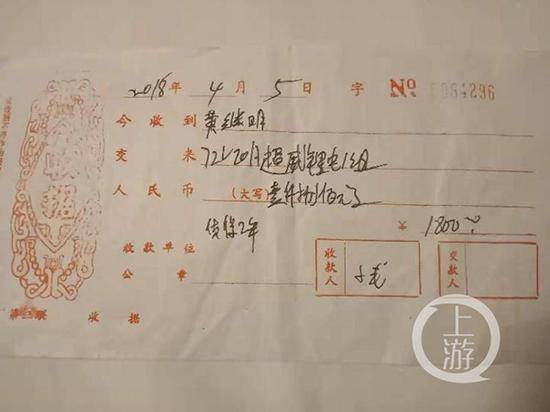 2018年 4月 5日 字 No 084296
今收到 黄继明
交来 72V20A超威锂电1组
人民币(大写)壹仟捌佰元
¥ 1800
质保2年
收款单位
公章
收款人
交款人
第三联 收据
收据
上游